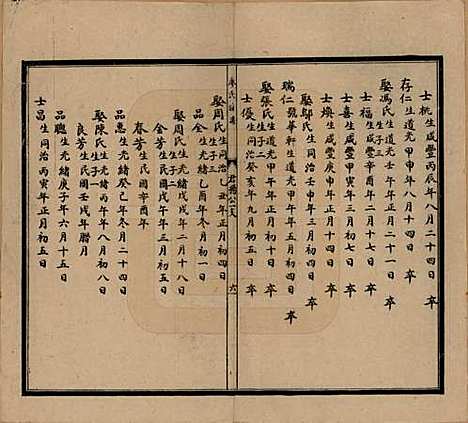 士桃生咸豐丙辰年八月二十四日
存仁生道光甲申年八月十四日 卒
娶馮氏生道光壬午年正月二十一日 卒
生子三
士福生咸豐辛酉年二月十七日 卒
士喜生咸豐甲寅年三月初七日 卒
士煥生咸豐甲 年 月初四日 卒
娶鄔氏生同治壬申年三月初三日 卒
瑞仁號華軒生道光甲午年五月初四日 卒
娶張氏生道光甲午年 月 卒
生子二
士優生同治癸亥年九月初五日 卒
氏族譜
六
娶周氏生同治乙丑年正月初四日
生子二
品金生光緒乙酉年冬月初一日
娶周氏生光緒戊戌年二月十八日
金芳生民國甲子年三月初五日
春芳生民國辛酉年
品惠生光緒癸巳年冬月二十四日
娶陳氏生光緒丙申年八月初八日
生子一
良芳生民國壬戌年腊月
品聰生光緒庚子年六月十五日
士昌生同治丙寅年正月初五日